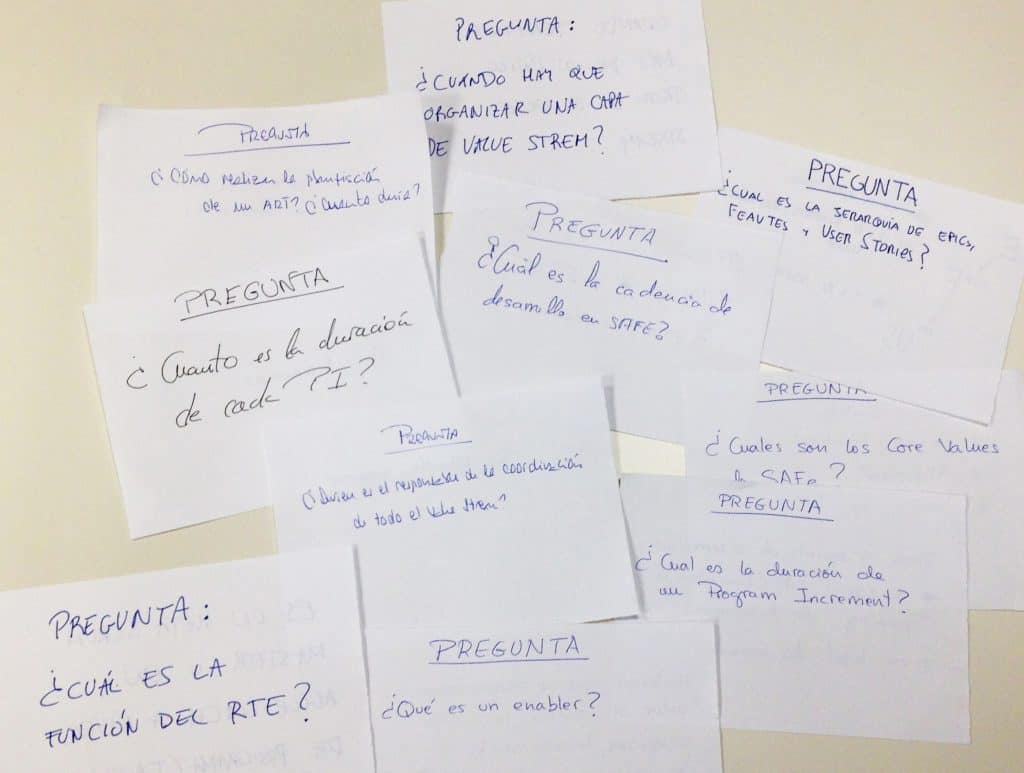 PREGUNTA:
¿CUANDO HAY QUE
ORGANIZAR UNA CAPA
DE VALUE STREM?
PREGUNTA
¿CÓMO realizar la planificación
de un ART? ¿Cuanto dura?
PREGUNTA
¿CUAL ES LA JERARQUÍA DE EPICS,
FEAUTES Y USER STORIES?
PREGUNTA
¿Cuál es la cadencia de
desarrollo en SAFE?
PREGUNTA
¿Cuanto es la duración
de cada PI?
PREGUNTA
¿Cuales son los Core Values
SAFe?
PREGUNTA
¿Quien es el responsable de la coordinación
de todo el Value Strem?
PREGUNTA
¿Cual es la duración de
un Program Increment?
PREGUNTA:
¿CUÁL ES LA
FUNCIÓN DEL RTE?
PREGUNTA
¿Qué es un enabler?